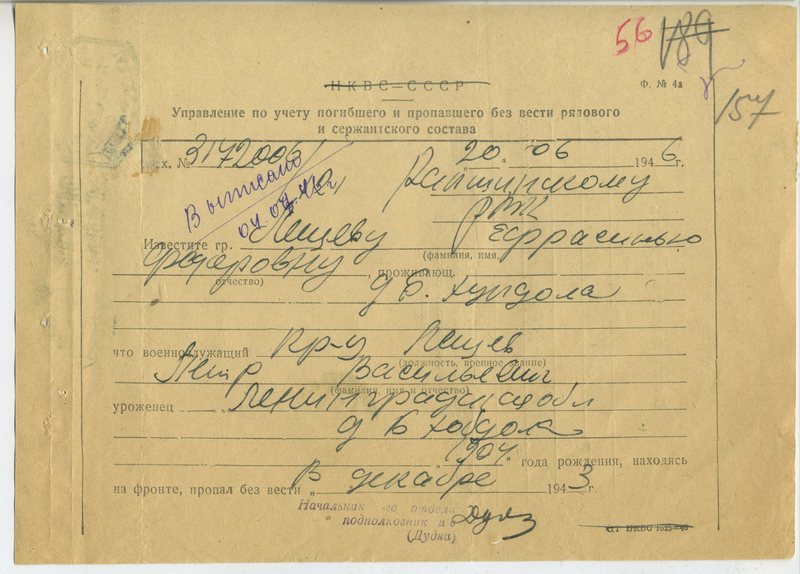 56 189
НКВС—СССР
Ф. № 4а
157
Управление по учету погибшего и пропавшего без вести рядового
и сержантского состава
х. № 3172006 „20„ 06 1946 г.
Выписано
04.09.46г
РВК
Известите гр. Пищеву Ефрасинью
(фамилия, имя,
Федоровну, проживающ.
отчество)
д Б.
что военнослужащий кр-ц Пищев
(должность, военное звание)
Петр Васильевич
(фамилия, имя и отчество)
уроженец Ленинградск. обл
д Б
904 „ года рождения, находясь
на фронте, пропал без вести „ В декабре 1943 г.
Начальник -го отдела
подполковник и с
(Дудка)
НКВС